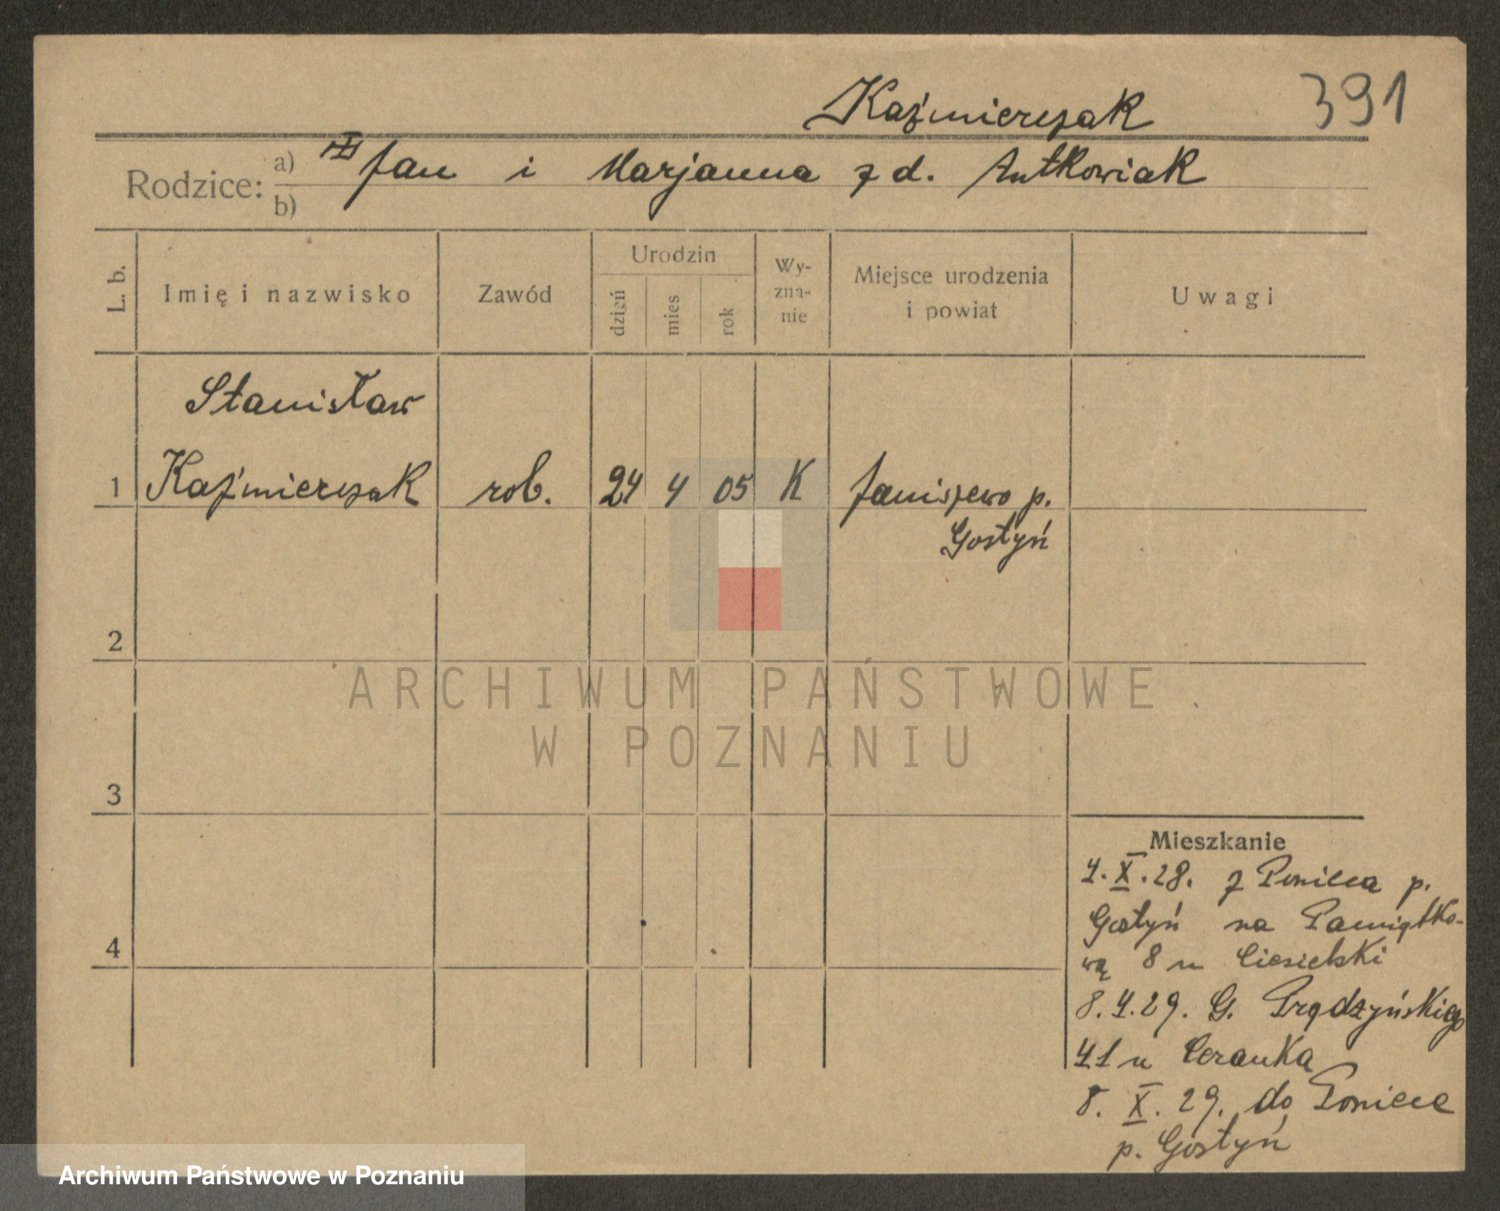 Kaźmierczak 391
Rodzice: a) Jan i Marjanna z d. Antkowiak
b)
L. b. Imię i nazwisko Zawód Urodzin dzień mies rok Wy-zna-nie Miejsce urodzenia i powiat Uwagi
Stanisław
1 Kaźmierczak rob. 24 4 05 K Janiszewo p.
Gostyń
2
ARCHIWUM PAŃSTWOWE
W POZNANIU
3
Mieszkanie
4.X.28. z Ponieca p.
Gostyń na Pamiątko-
wą 8 u Ciesielski
4
8.4.29. G. Prądzyńskiego
41 u Ceranka
8.X.29. do Poniece
p. Gostyń
Archiwum Państwowe w Poznaniu